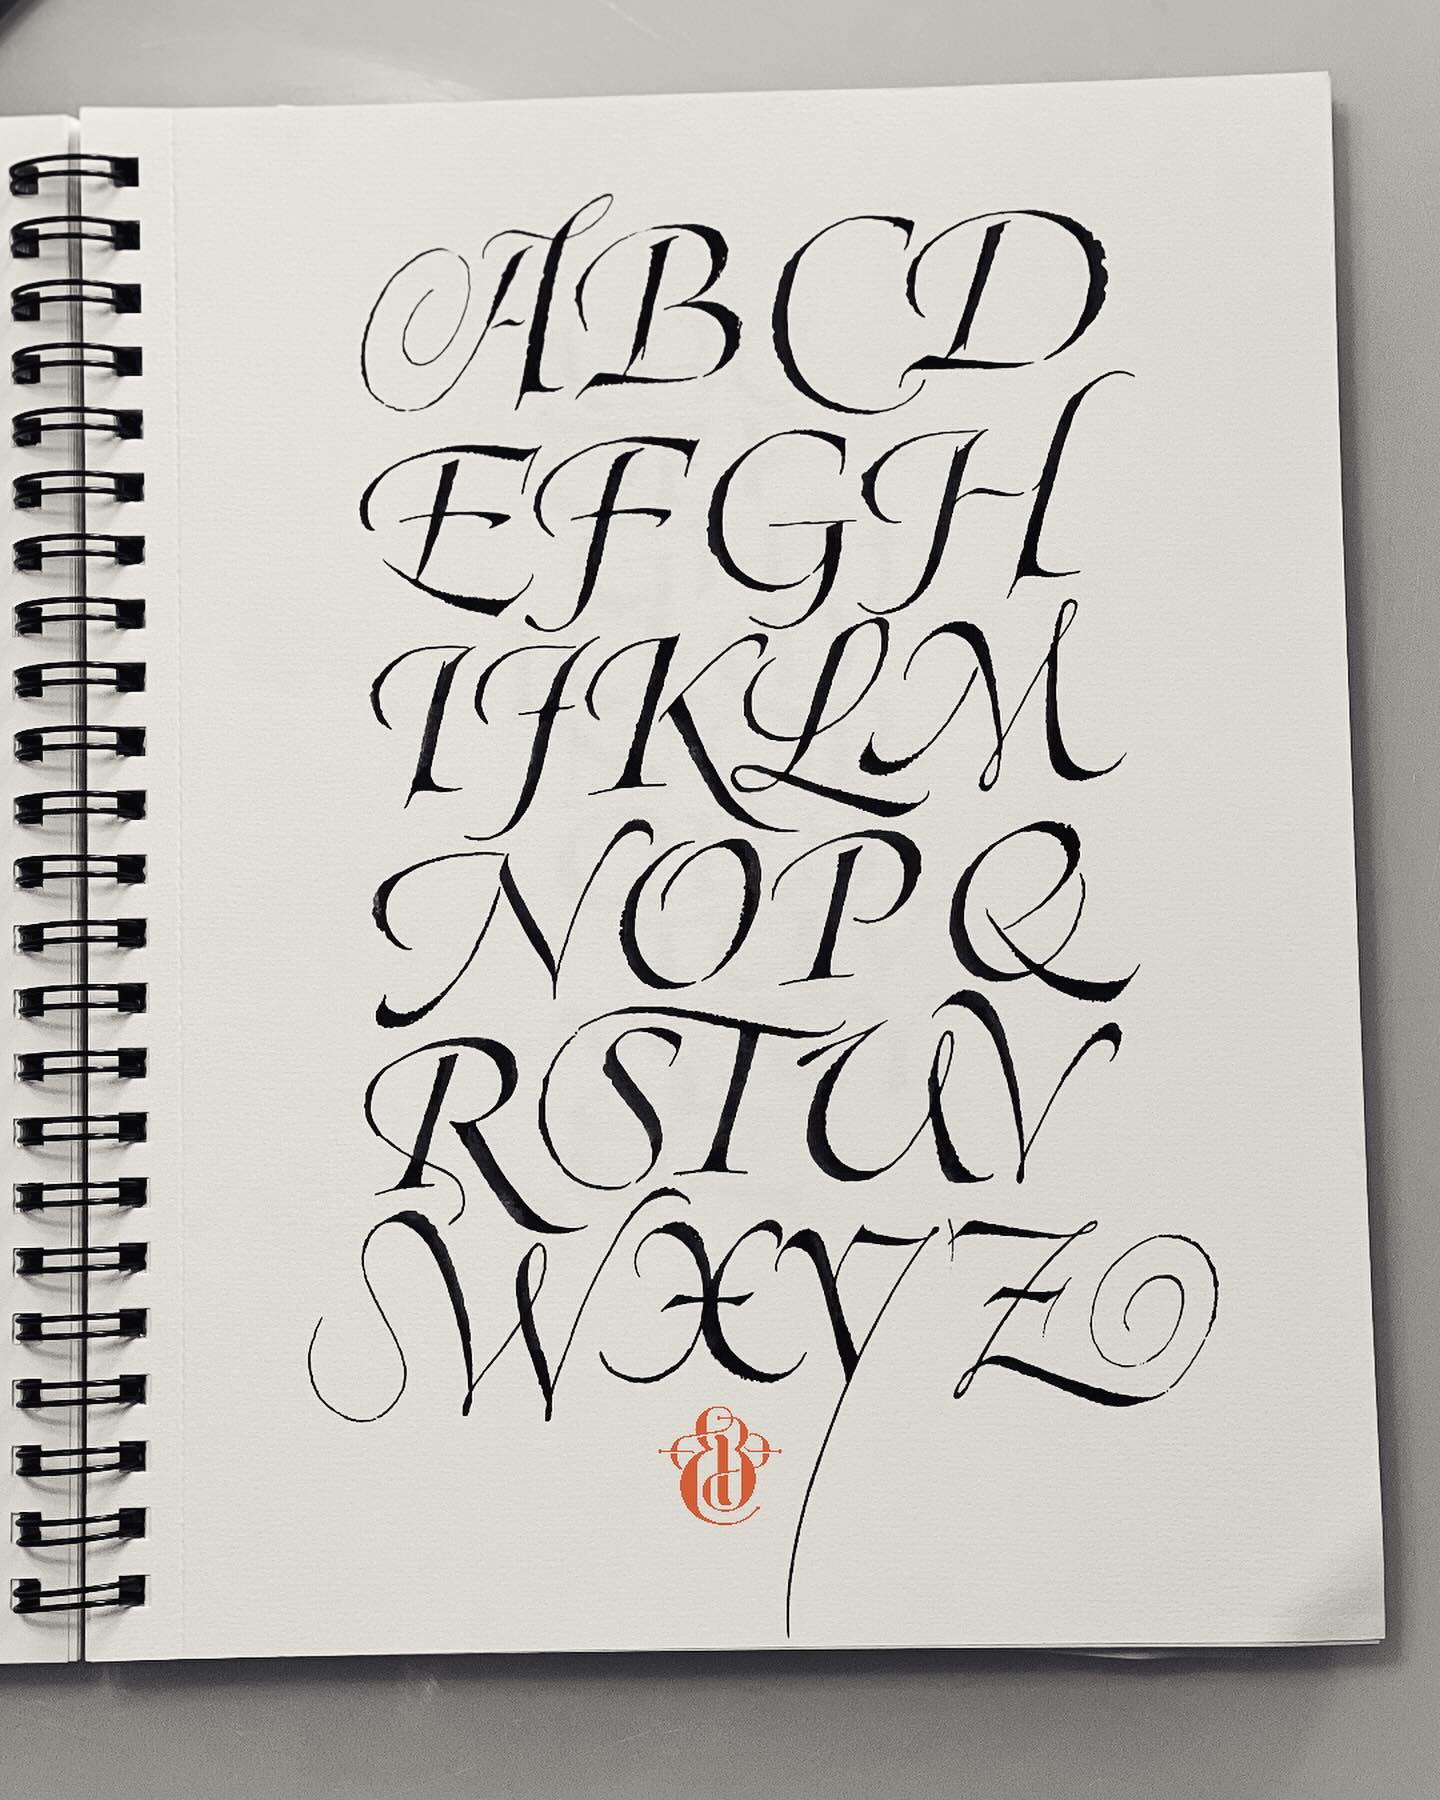 ABCD
EFGH
IJKLM
NOPQ
RSTUV
WXYZ